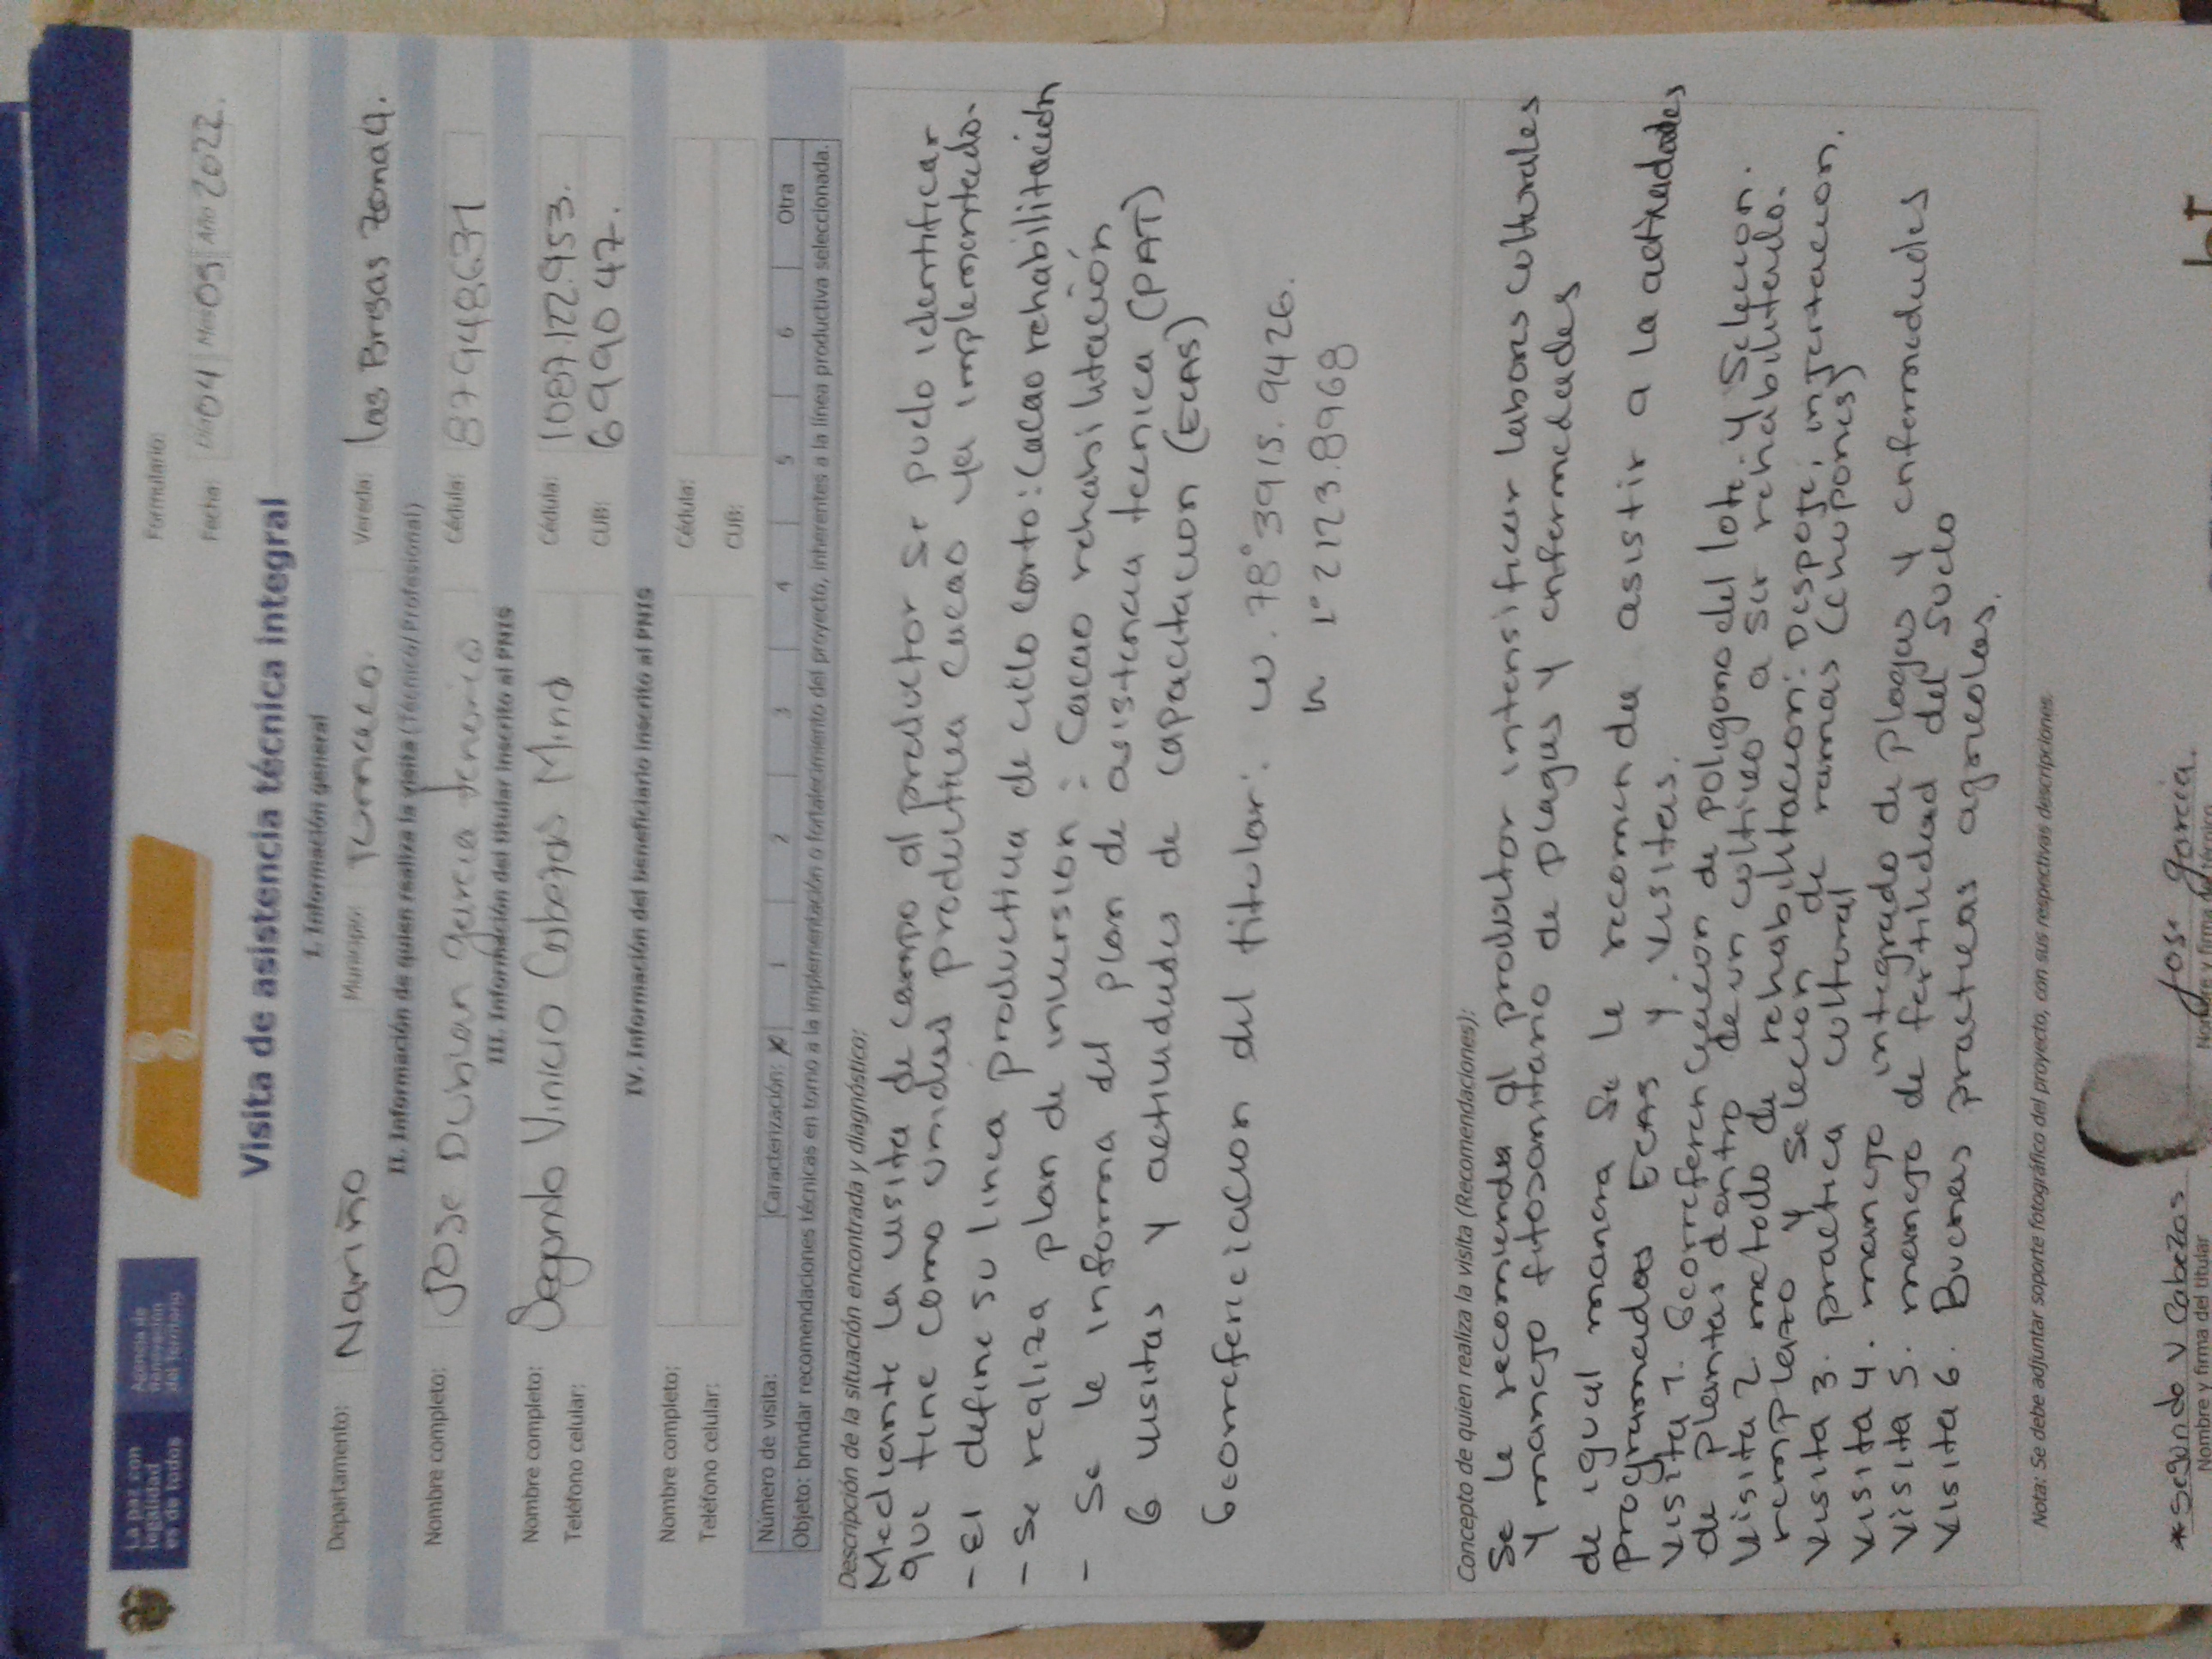 La paz con
legalidad
es de todos
Agencia de
Renovación
del Territorio
Formulario:
Fecha: Día 04 Mes 05 Año 2022.
Visita de asistencia técnica integral
I. Información general
Departamento: Nariño Municipio: Tumaco. Vereda: las Brisas zona 4.
II. Información de quien realiza la visita (Técnico/ Profesional)
Nombre completo: Jose Dubian garcia tenorio Cédula: 87948631
III. Información del titular inscrito al PNIS
Nombre completo: Segundo Vinicio Cabezas Mina Cédula: 1087.122.953.
Teléfono celular: CUB: 6990 47.
IV. Información del beneficiario inscrito al PNIS
Nombre completo: Cédula:
Teléfono celular: CUB:
Número de visita: Caracterización: X 1 2 3 4 5 6 Otra
Objeto: brindar recomendaciones técnicas en torno a la implementación o fortalecimiento del proyecto, inherentes a la línea productiva seleccionada.
Descripción de la situación encontrada y diagnóstico:
Mediante la visita de campo al productor se pudo identificar
que tiene como unidad productiva cacao ya implementado.
- El define su linea productiva de ciclo corto: Cacao rehabilitación
- se realiza plan de inversion : Cacao rehabilitación
- Se le informa del plan de asistencia tecnica (PAT)
6 visitas y actividades de capacitacion (ECAS)
Georreferenciacion del titular: W. 78° 39 15. 9426.
N 1° 21'23.8968
Concepto de quien realiza la visita (Recomendaciones):
Se le recomienda al productor intensificar labores culturales
y manejo fitosanitario de plagas y enfermedades
de igual manera se le recomienda asistir a la actividades
programadas ECAS y visitas.
Visita 1. Georreferenciacion de poligono del lote. y Selecion.
de plantas dentro de un cultivo a ser rehabilitado.
Visita 2. metodo de rehabilitacion: Despoje, injertacion.
remplazo y selecion de ramas (chupones)
Visita 3. practica cultural
Visita 4. manejo integrado de Plagas y enfermedades
Visita 5. manejo de fertilidad del suelo
Visita 6. Buenas practicas agricolas.
Nota: Se debe adjuntar soporte fotográfico del proyecto, con sus respectivas descripciones.
* Segundo V Cabezas
Nombre y firma del titular
Jose garcia.